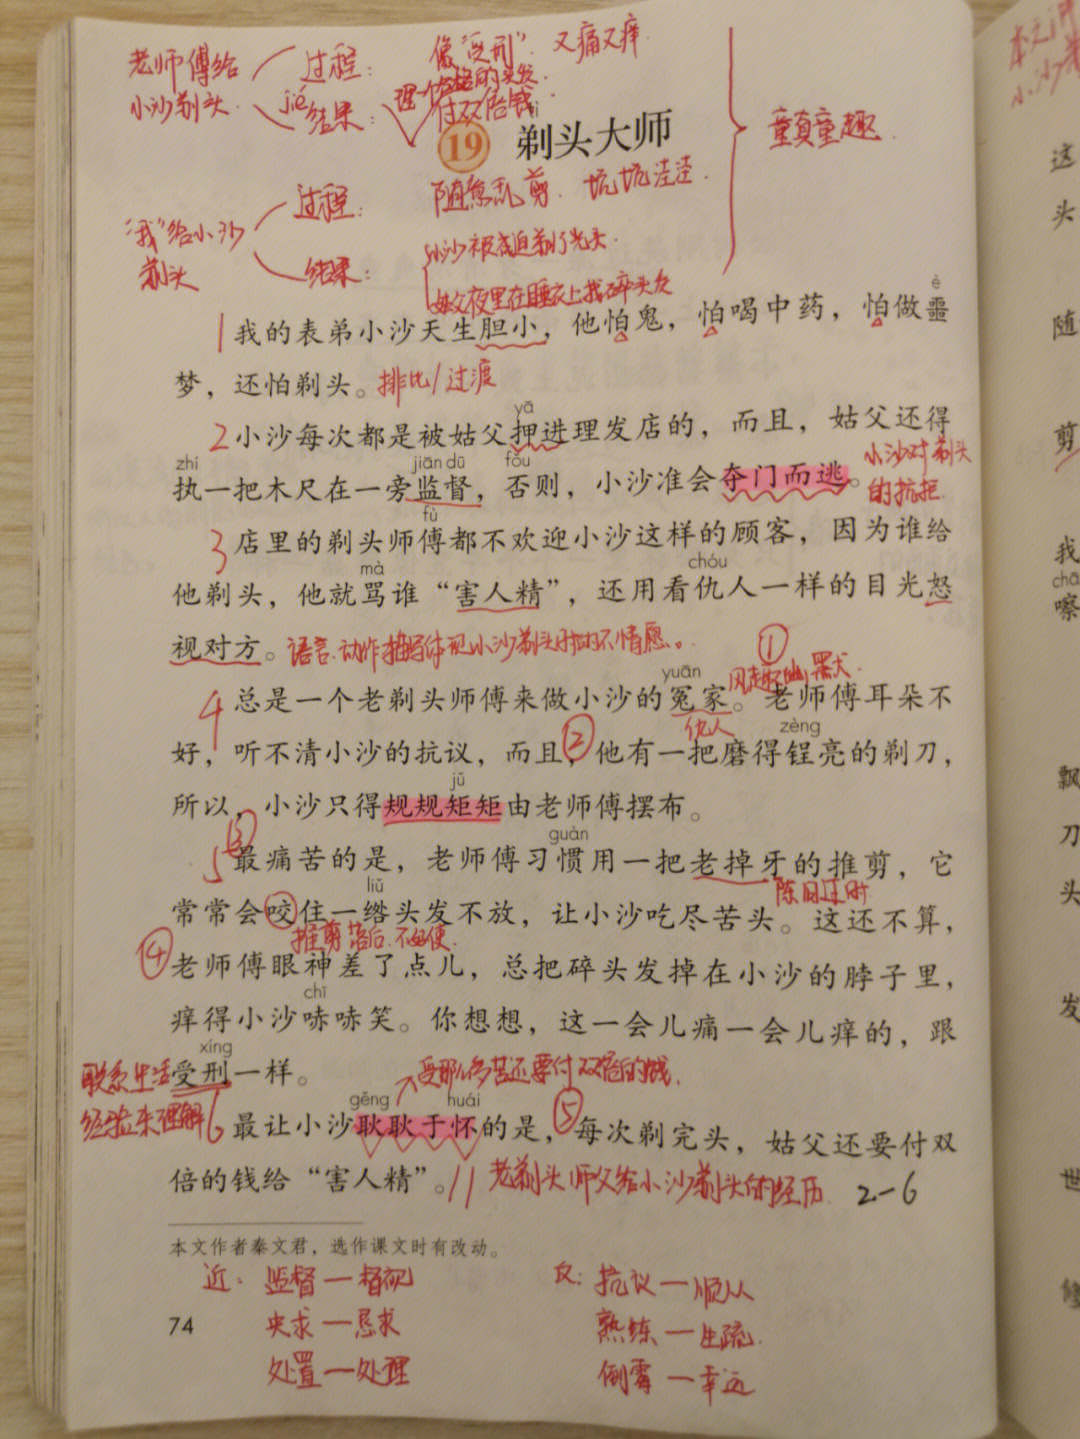 老师傅给
小沙剃头
过程：
像“受刑”．又痛又痒
jié
结果：
付双倍钱
tì
19 剃头大师
童真童趣
“我”给小沙
剃头
过程：
随意乱剪．坑坑洼洼．
结果：
小沙被迫剃了光头．
姑父夜里在睡衣上找碎头发
è
1 我的表弟小沙天生胆小，他怕鬼，怕喝中药，怕做噩
梦，还怕剃头。排比/过渡
yā
2 小沙每次都是被姑父押进理发店的，而且，姑父还得
小沙对剃头
的抗拒
zhí jiān dū fǒu
执一把木尺在一旁监督，否则，小沙准会夺门而逃。
fù
3 店里的剃头师傅都不欢迎小沙这样的顾客，因为谁给
mà chóu
他剃头，他就骂谁“害人精”，还用看仇人一样的目光怒
视对方。语言．动作描写体现小沙剃头时的不情愿。
①
yuān
4 总是一个老剃头师傅来做小沙的冤家。老师傅耳朵不
仇人
zèng
好，听不清小沙的抗议，而且，②他有一把磨得锃亮的剃刀，
jǔ
所以，小沙只得规规矩矩由老师傅摆布。
③
guàn
5 最痛苦的是，老师傅习惯用一把老掉牙的推剪，它
陈旧过时
liǔ
常常会咬住一绺头发不放，让小沙吃尽苦头。这还不算，
推剪落后．不好使．
④
老师傅眼神差了点儿，总把碎头发掉在小沙的脖子里，
chī
痒得小沙哧哧笑。你想想，这一会儿痛一会儿痒的，跟
xíng
受刑一样。
联系生活
经验来理解
受那么多苦还要付双倍的钱．
gěng huái
6 最让小沙耿耿于怀的是，⑤每次剃完头，姑父还要付双
倍的钱给“害人精”。// 老剃头师父给小沙剃头的经历 2—6
本文作者秦文君，选作课文时有改动。
近：监督—督视
反：抗议—顺从
74
央求—恳求
熟练—生疏
处置—处理
倒霉—幸运